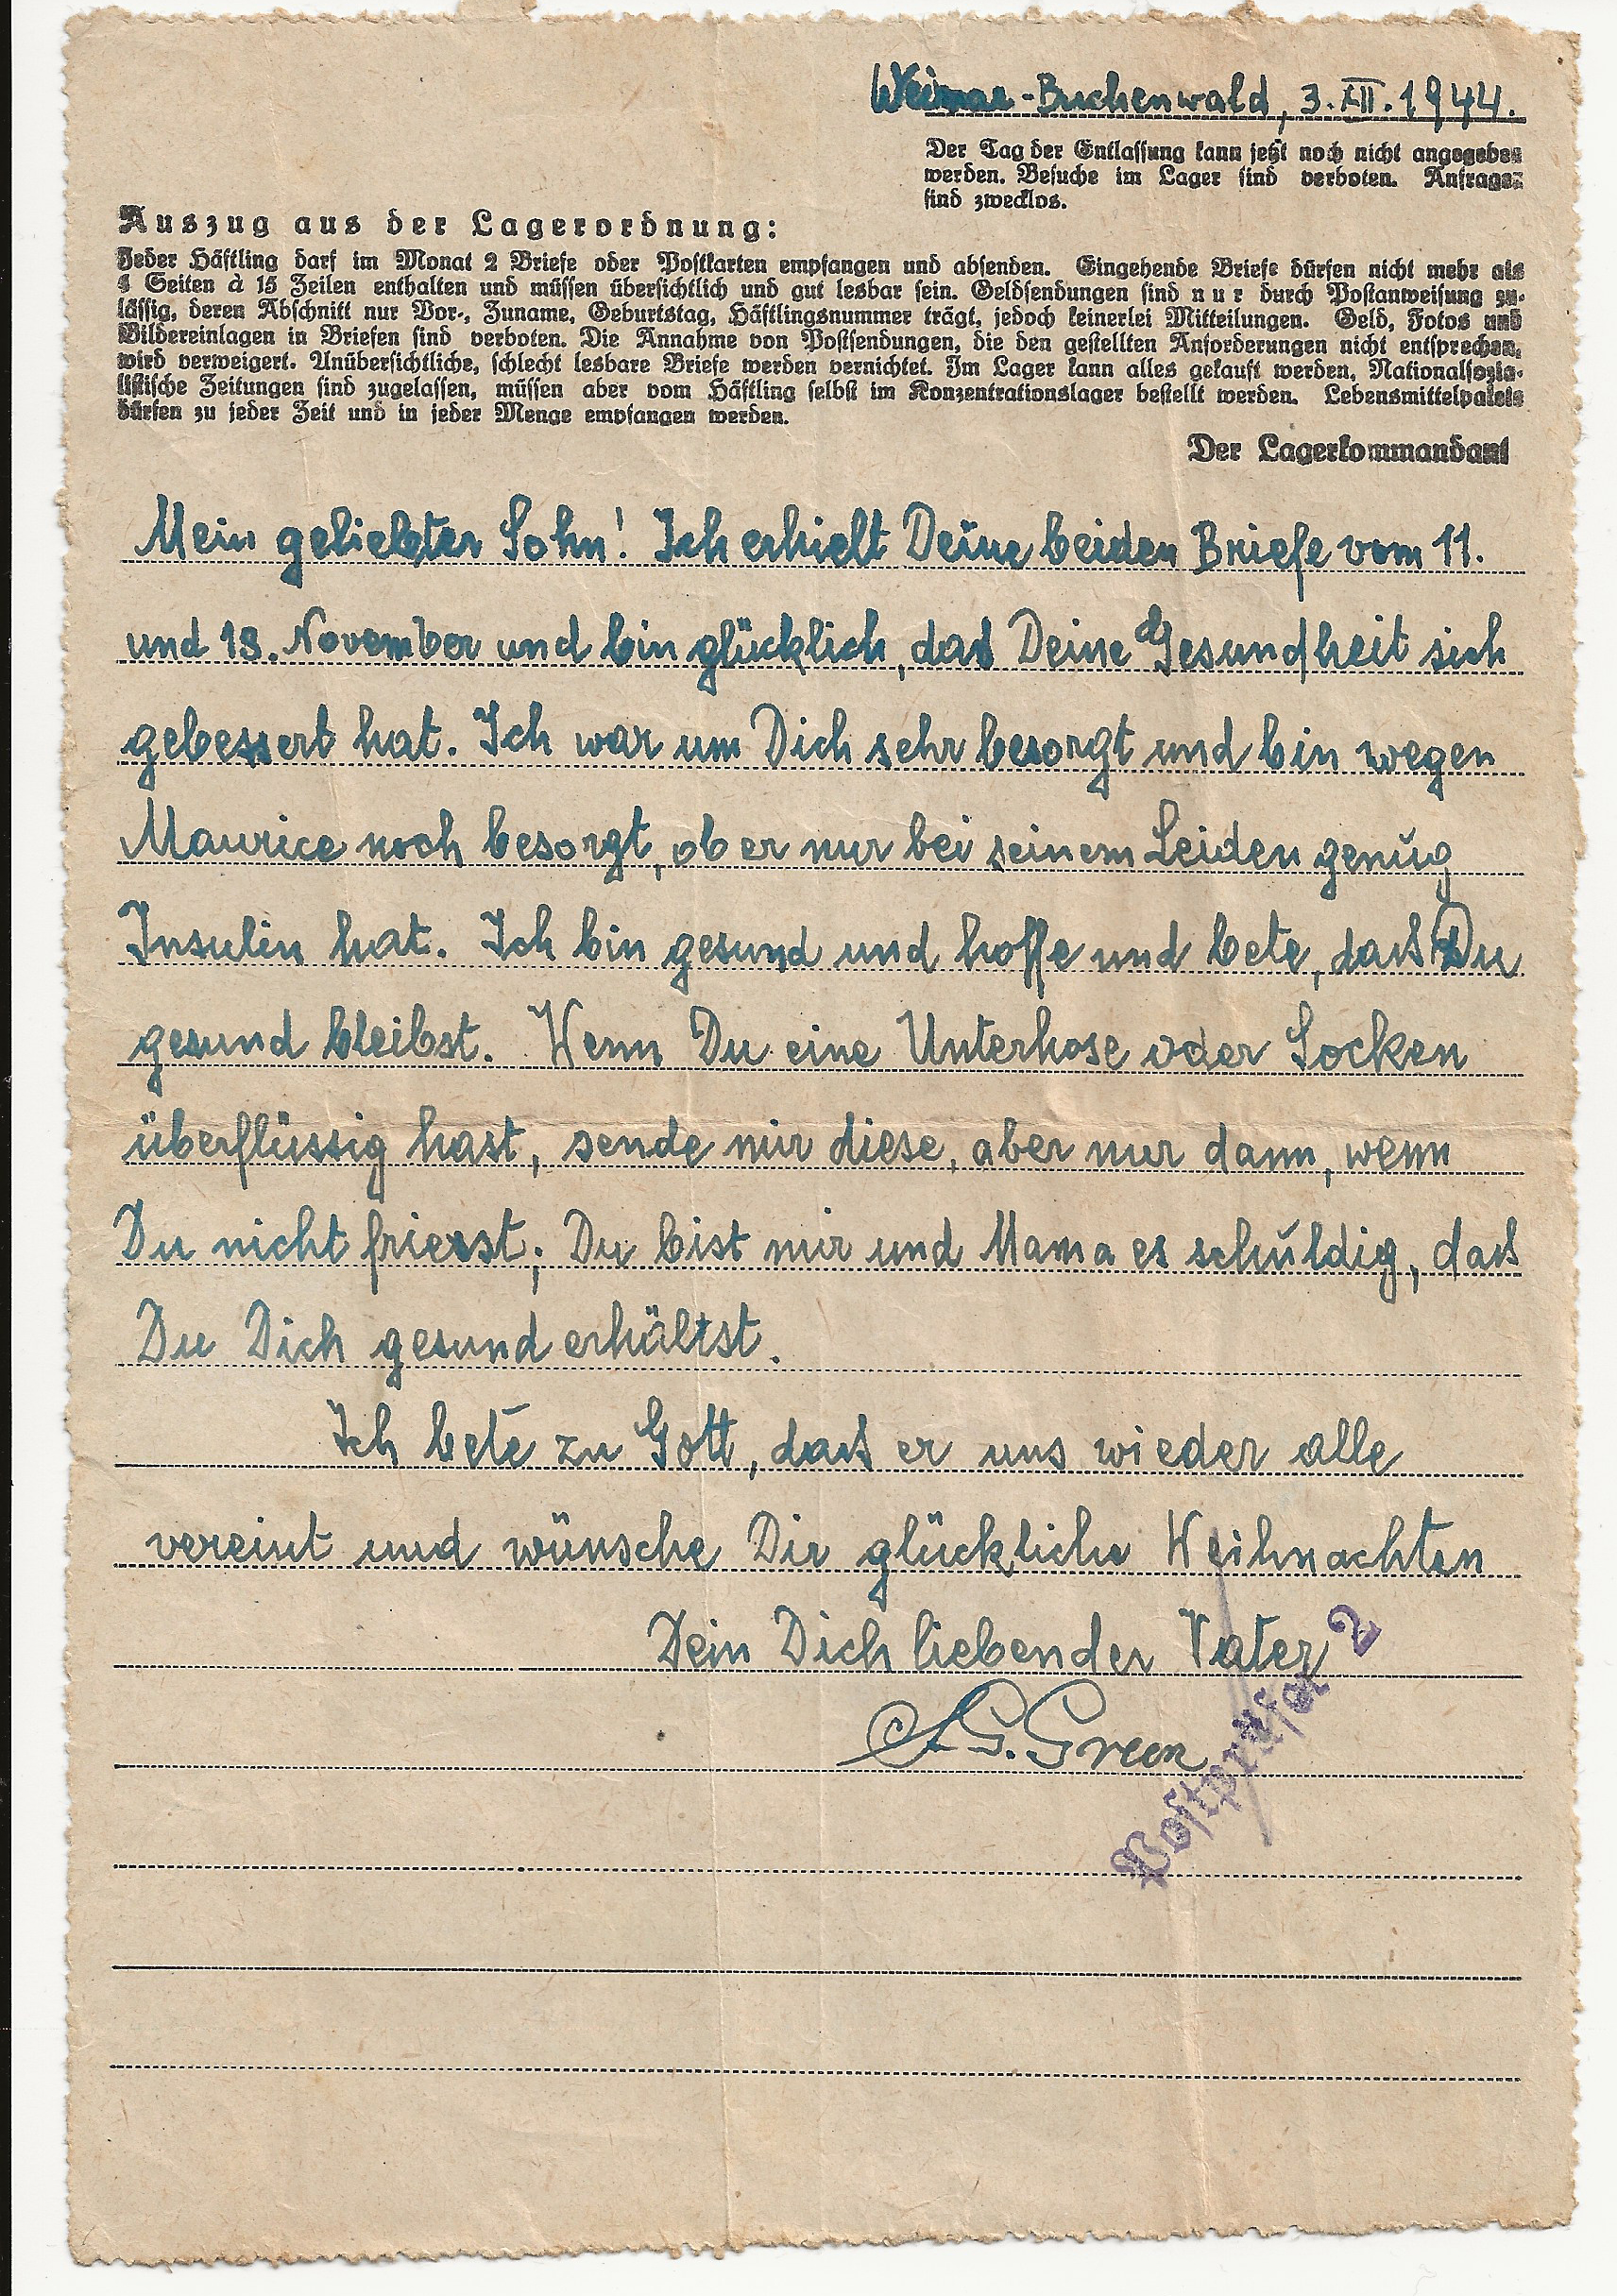 Weimar-Buchenwald, 3.XII.1944.
Der Tag der Entlassung kann jetzt noch nicht angegeben
werden. Besuche im Lager sind verboten. Anfragen
sind zwecklos.
Auszug aus der Lagerordnung:
Jeder Häftling darf im Monat 2 Briefe oder Postkarten empfangen und absenden. Eingehende Briefe dürfen nicht mehr als
4 Seiten à 15 Zeilen enthalten und müssen übersichtlich und gut lesbar sein. Geldsendungen sind nur durch Postanweisung zu-
lässig, deren Abschnitt nur Vor-, Zuname, Geburtstag, Häftlingsnummer trägt, jedoch keinerlei Mitteilungen. Geld, Fotos und
Bildereinlagen in Briefen sind verboten. Die Annahme von Postsendungen, die den gestellten Anforderungen nicht entsprechen,
wird verweigert. Unübersichtliche, schlecht lesbare Briefe werden vernichtet. Im Lager kann alles gekauft werden, Nationalsozia-
listische Zeitungen sind zugelassen, müssen aber vom Häftling selbst im Konzentrationslager bestellt werden. Lebensmittelpakete
dürfen zu jeder Zeit und in jeder Menge empfangen werden.
Der Lagerkommandant
Mein geliebter Sohn! Ich erhielt Deine beiden Briefe vom 11.
und 18. November und bin glücklich, daß Deine Gesundheit sich
gebessert hat. Ich war um Dich sehr besorgt und bin wegen
Maurice noch besorgt, ob er nur bei seinem Leiden genug
Insulin hat. Ich bin gesund und hoffe und bete, daß Du
gesund bleibst. Wenn Du eine Unterhose oder Socken
überflüssig hast, sende mir diese, aber nur dann, wenn
Du nicht frierst; Du bist mir und Mama es schuldig, daß
Du Dich gesund erhältst.
Ich bete zu Gott, daß er uns wieder alle
vereint und wünsche Dir glückliche Weihnachten
Dein Dich liebender Vater
G. Green
Postprüfer 2